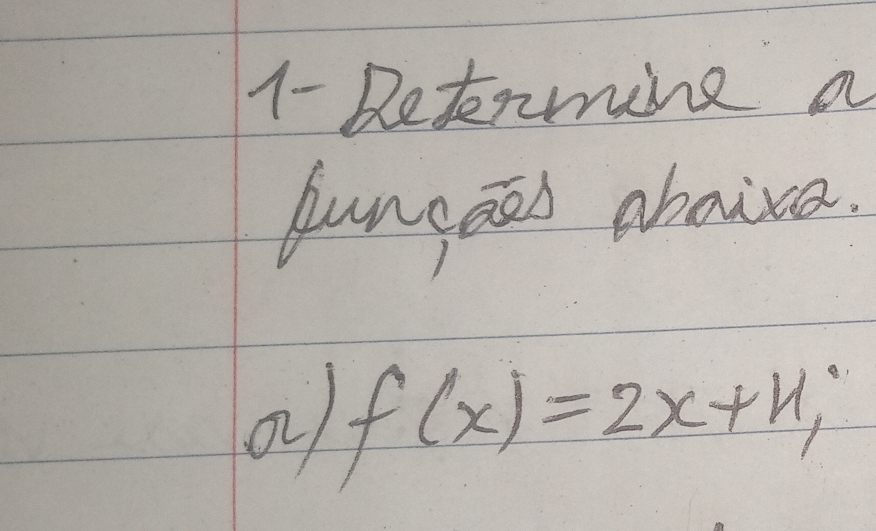 1- Determine a
funções abaixo.
a) f(x) = 2x+4;